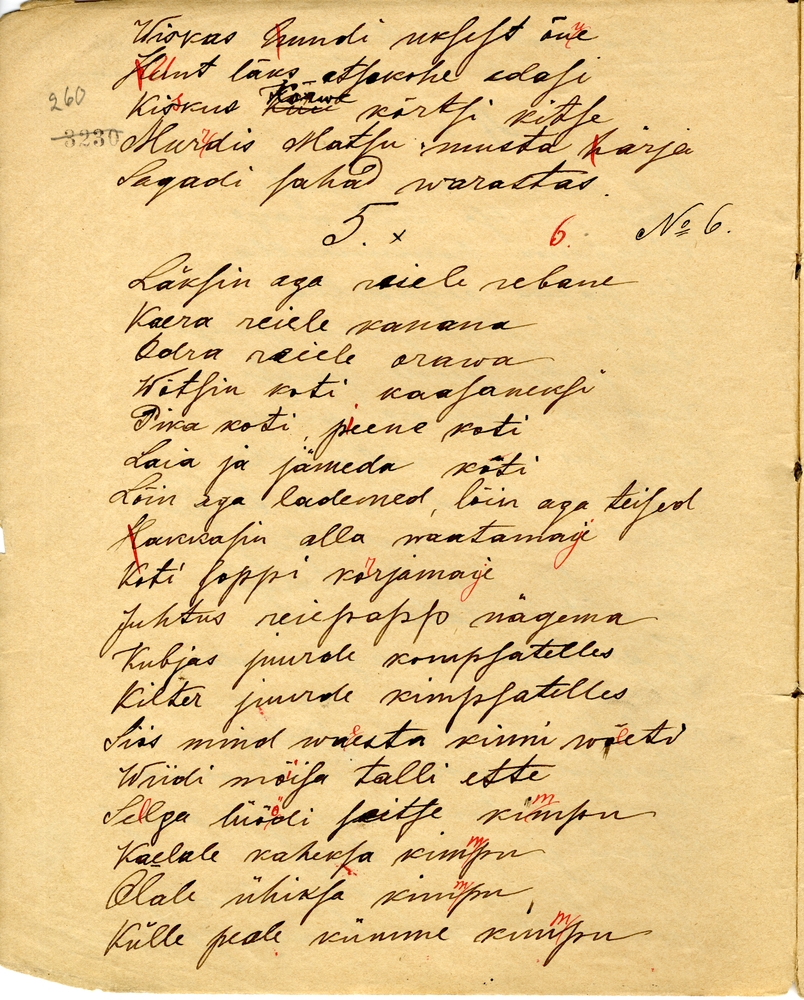 Wiskas hundi uksest õue
Hunt läks otsekohe edasi
260
Kiskus Kõrwe kõrtsi kitse
3230
Murdis Matsu musta härja
Sagadi sahad warastas
5. x 6. No 6.
Läksin aga reiele rebane
Kaera reiele kanana
Odra reiele orawa
Wõtsin koti kaasaneksi
Pika koti, peene koti
Laia ja jämeda koti
Lõin aga lademed, lõin aga teised
Hakkasin alla waatamaie
Koti soppi korjamaie
Juhtus reiepapp nägema
Kubjas juurde kompsatelles
Kilter juurde kimpsatelles
Siis mind waesta kinni wõeti
Wiidi mõisa talli ette
Selga lüödi seitse kimpu
Kaelale kaheksa kimpu
Õlale ühiksa kimpu
Külle peale kümme kimpu